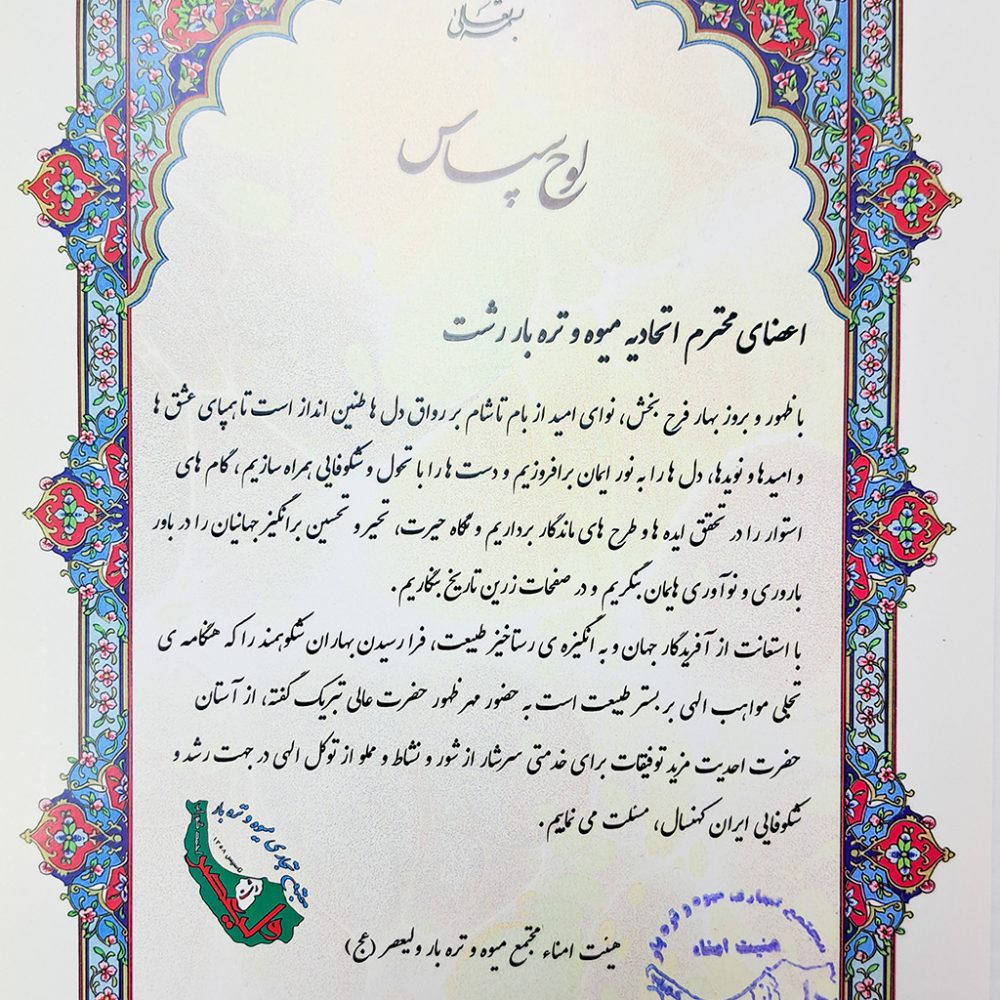 بسمه تعالی
لوح سپاس
اعضای محترم اتحادیه میوه و تره بار رشت
با ظهور و بروز بهار فرح بخش، نوای امید از بام تا شام بر رواق دل ها طنین انداز است تا همپای عشق ها
و امیدها و نویدها، دل ها را به نور ایمان برافروزیم و دست ها را با تحول و شکوفایی همراه سازیم، گام های
استوار را در تحقق ایده ها و طرح های ماندگار برداریم و نگاه حیرت، تحیر و تحسین برانگیز جهانیان را در باور
باروری و نوآوری هایمان بنگریم و در صفحات زرین تاریخ بنگاریم.
با استعانت از آفریدگار جهان و به انگیزه ی رستاخیز طبیعت، فرا رسیدن بهاران شکوهمند را که هنگامه ی
تجلی مواهب الهی بر بستر طبیعت است به حضور مهر ظهور حضرت عالی تبریک گفته، از آستان
حضرت احدیت مزید توفیقات برای خدمتی سرشار از شور و نشاط و مملو از توکل الهی در جهت رشد و
شکوفایی ایران کهنسال، مسئلت می نماییم.
مجتمع تجاری میوه و تره بار
تاسیس ۱۳۷۸
ولیعصر
هیئت امناء مجتمع میوه و تره بار ولیعصر (عج)
مجتمع تجاری میوه و تره بار
هیئت امناء